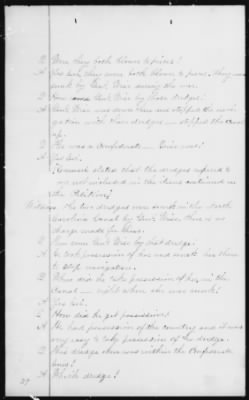 Q Were they both blown to pieces?
A Yes sir, they were both blown to pieces. They were
sunk by Genl. Wise during the war.
Q How Genl. Wise by those dredges?
A Genl. Wise was down there and stopped the navi-
gation with those dredges — stopped the canal
up.
Q He was a Confederate — Genl. Wise?
A Yes sir.
(Counsel stated that the dredges referred to
are not included in the items contained in
the Petition)
Witness. The two dredges were sunk in the North
Carolina Canal by Genl. Wise. There is no
charge made for them.
Q How came Genl. Wise by that dredge?
A He took possession of her and sunk her there
to stop navigation.
Q Where did he take possession of her, in the
Canal — right where she was sunk?
A Yes sir.
Q How did he get possession?
A He had possession of the country and it was
very easy to take possession of the dredge.
Q This dredge then was within the Confederate
lines?
A Which dredge?
27